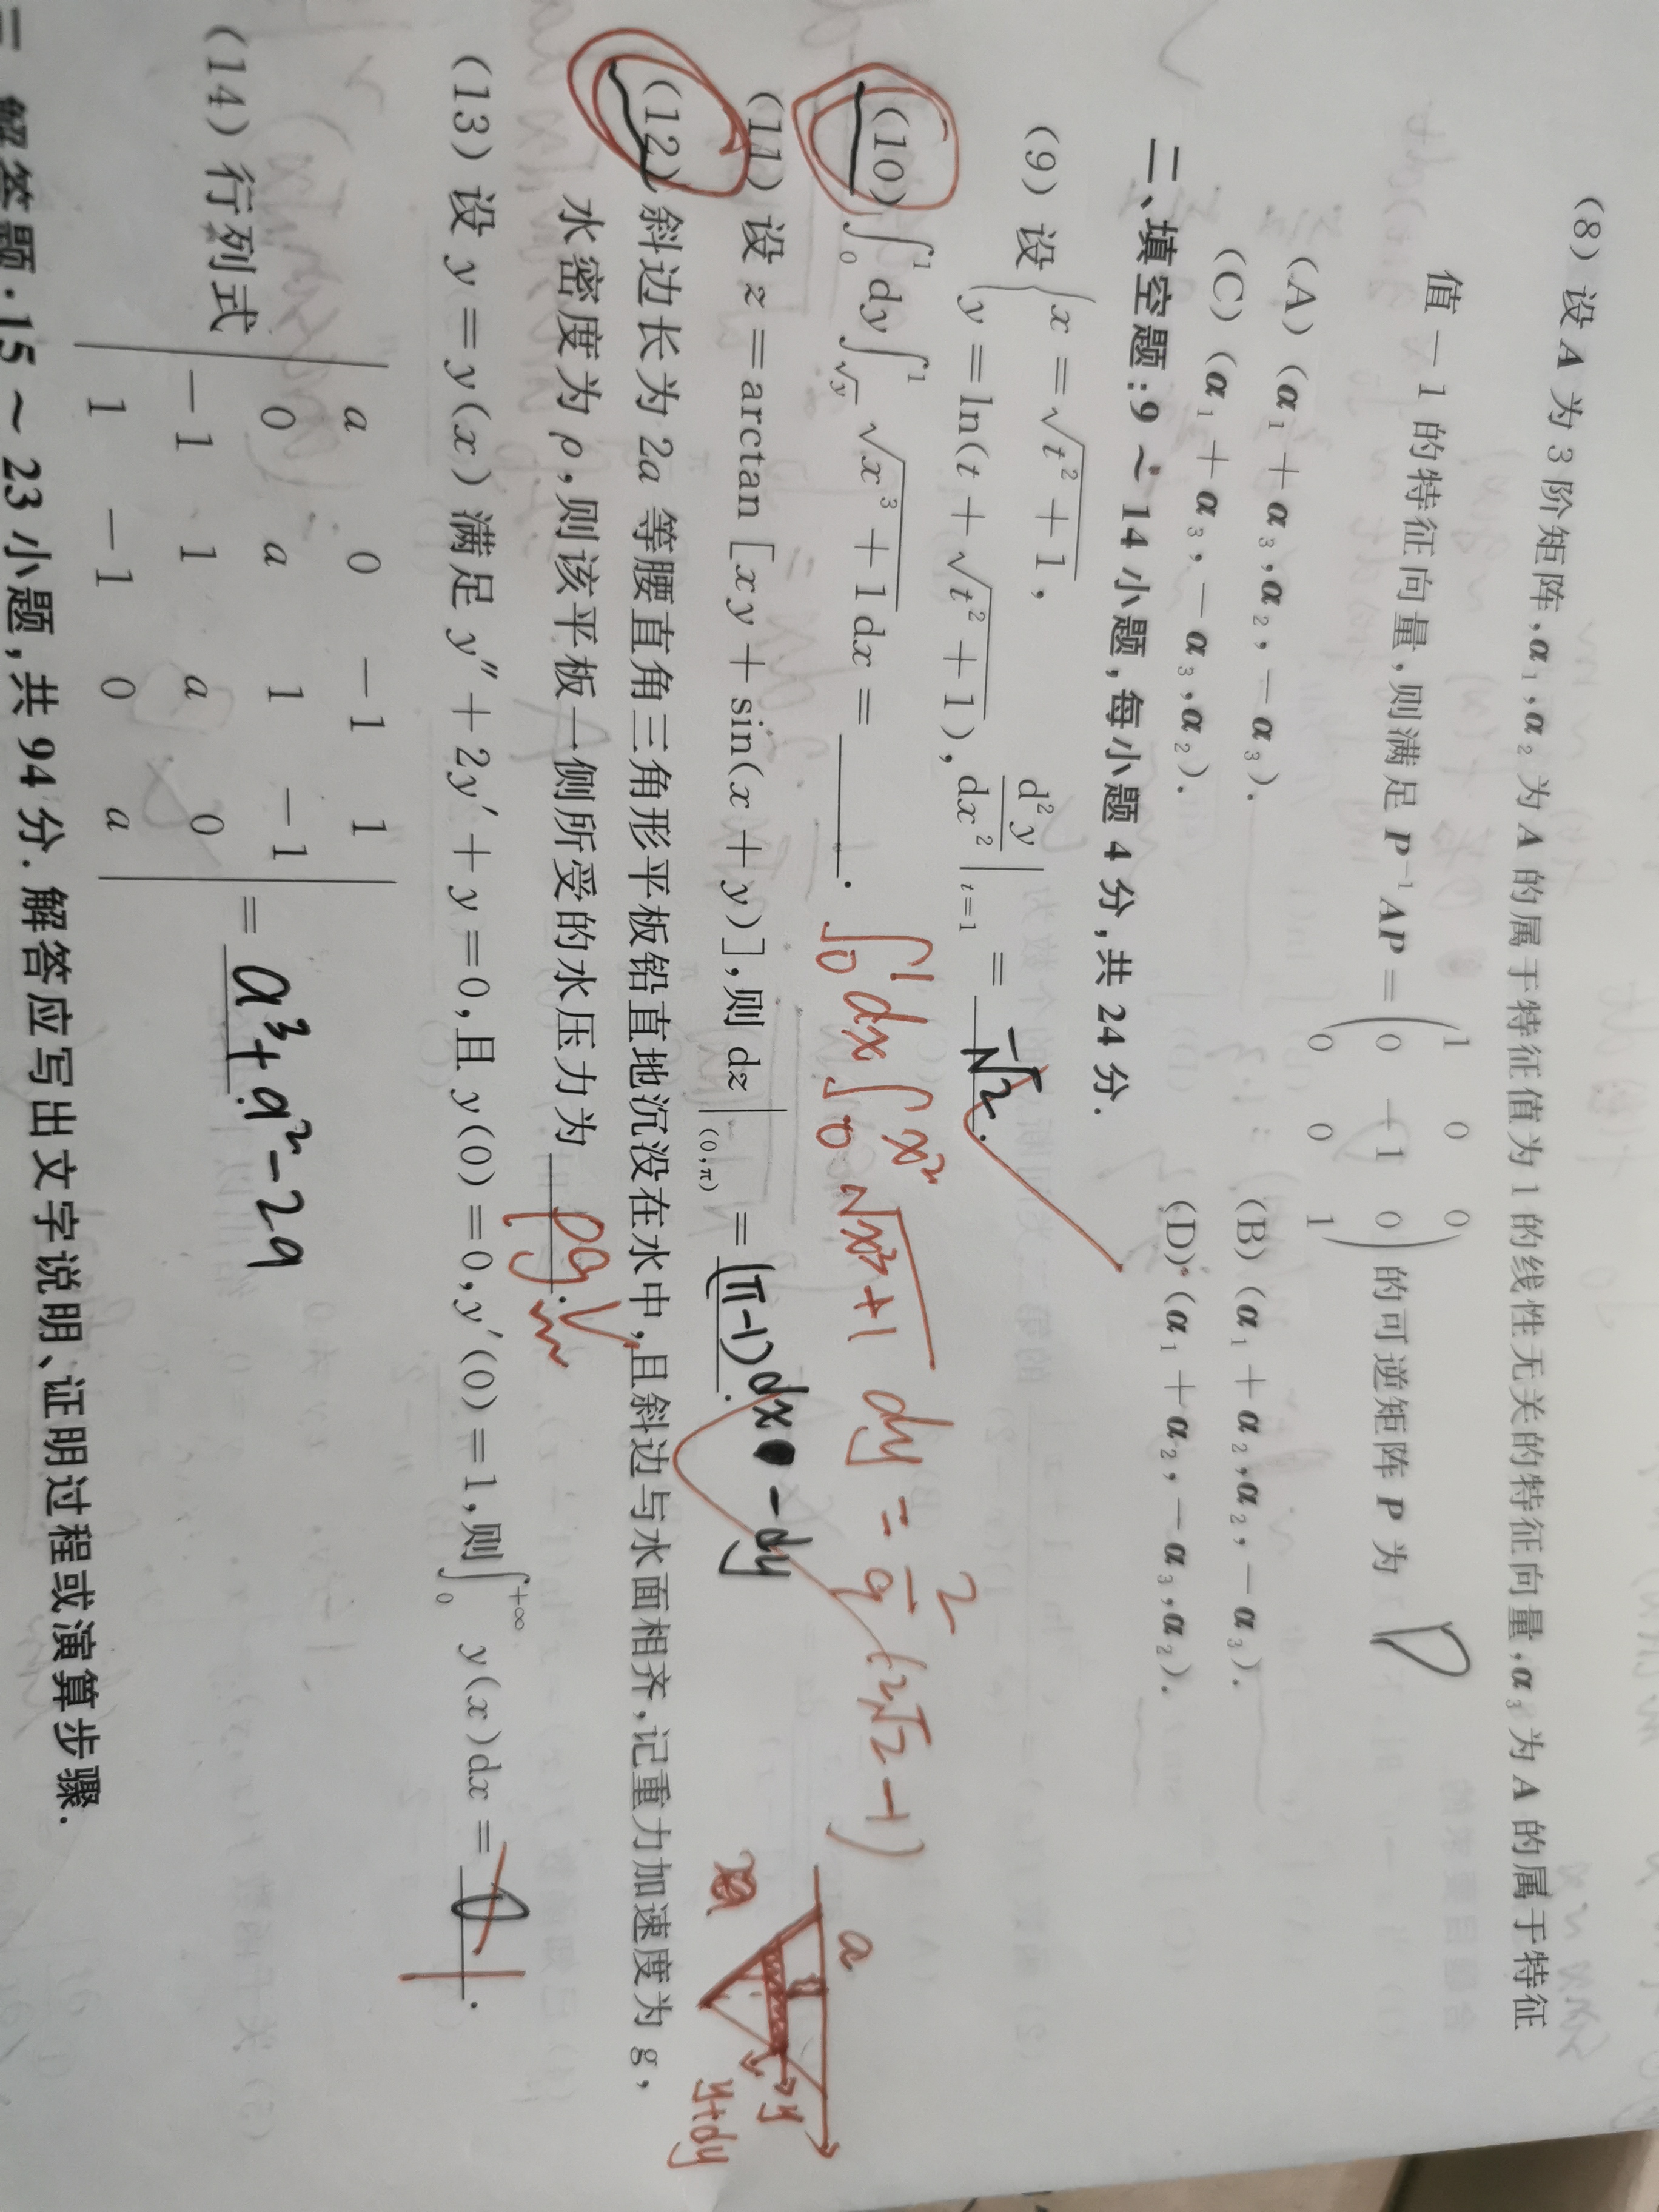 (8) 设 A 为 3 阶矩阵,α₁,α₂ 为 A 的属于特征值为 1 的线性无关的特征向量,α₃ 为 A 的属于特征
值 −1 的特征向量,则满足 P⁻¹AP = (1 0 0
0 −1 0
0 0 1) 的可逆矩阵 P 为 D
(A) (α₁ + α₃,α₂,−α₃). (B) (α₁ + α₂,α₂,−α₃).
(C) (α₁ + α₃,−α₃,α₂). (D) (α₁ + α₂,−α₃,α₂).
二、填空题:9 ~ 14 小题,每小题 4 分,共 24 分.
(9) 设 { x = √(t² + 1),
y = ln(t + √(t² + 1)), d²y/dx² |t=1 = −√2.
(10) ∫₀¹ dy ∫_√y^1 √(x³ + 1) dx = ____. ∫₀¹ dx ∫₀^x² √(x³+1) dy = 2/9 (2√2 −1)
(11) 设 z = arctan [xy + sin(x + y)],则 dz |(0,π) = (π−1)dx − dy.
(12) 斜边长为 2a 等腰直角三角形平板铅直地沉没在水中,且斜边与水面相齐,记重力加速度为 g,
水密度为 ρ,则该平板一侧所受的水压力为 ρg.
a
y
y+dy
(13) 设 y = y(x) 满足 y″ + 2y′ + y = 0,且 y(0) = 0,y′(0) = 1,则 ∫₀^+∞ y(x)dx = 0 1.
(14) 行列式 | a 0 −1 1
0 a 1 −1
−1 1 a 0
1 −1 0 a | = a³+a²−2a.
三 解答题:15 ~ 23 小题,共 94 分.解答应写出文字说明、证明过程或演算步骤.